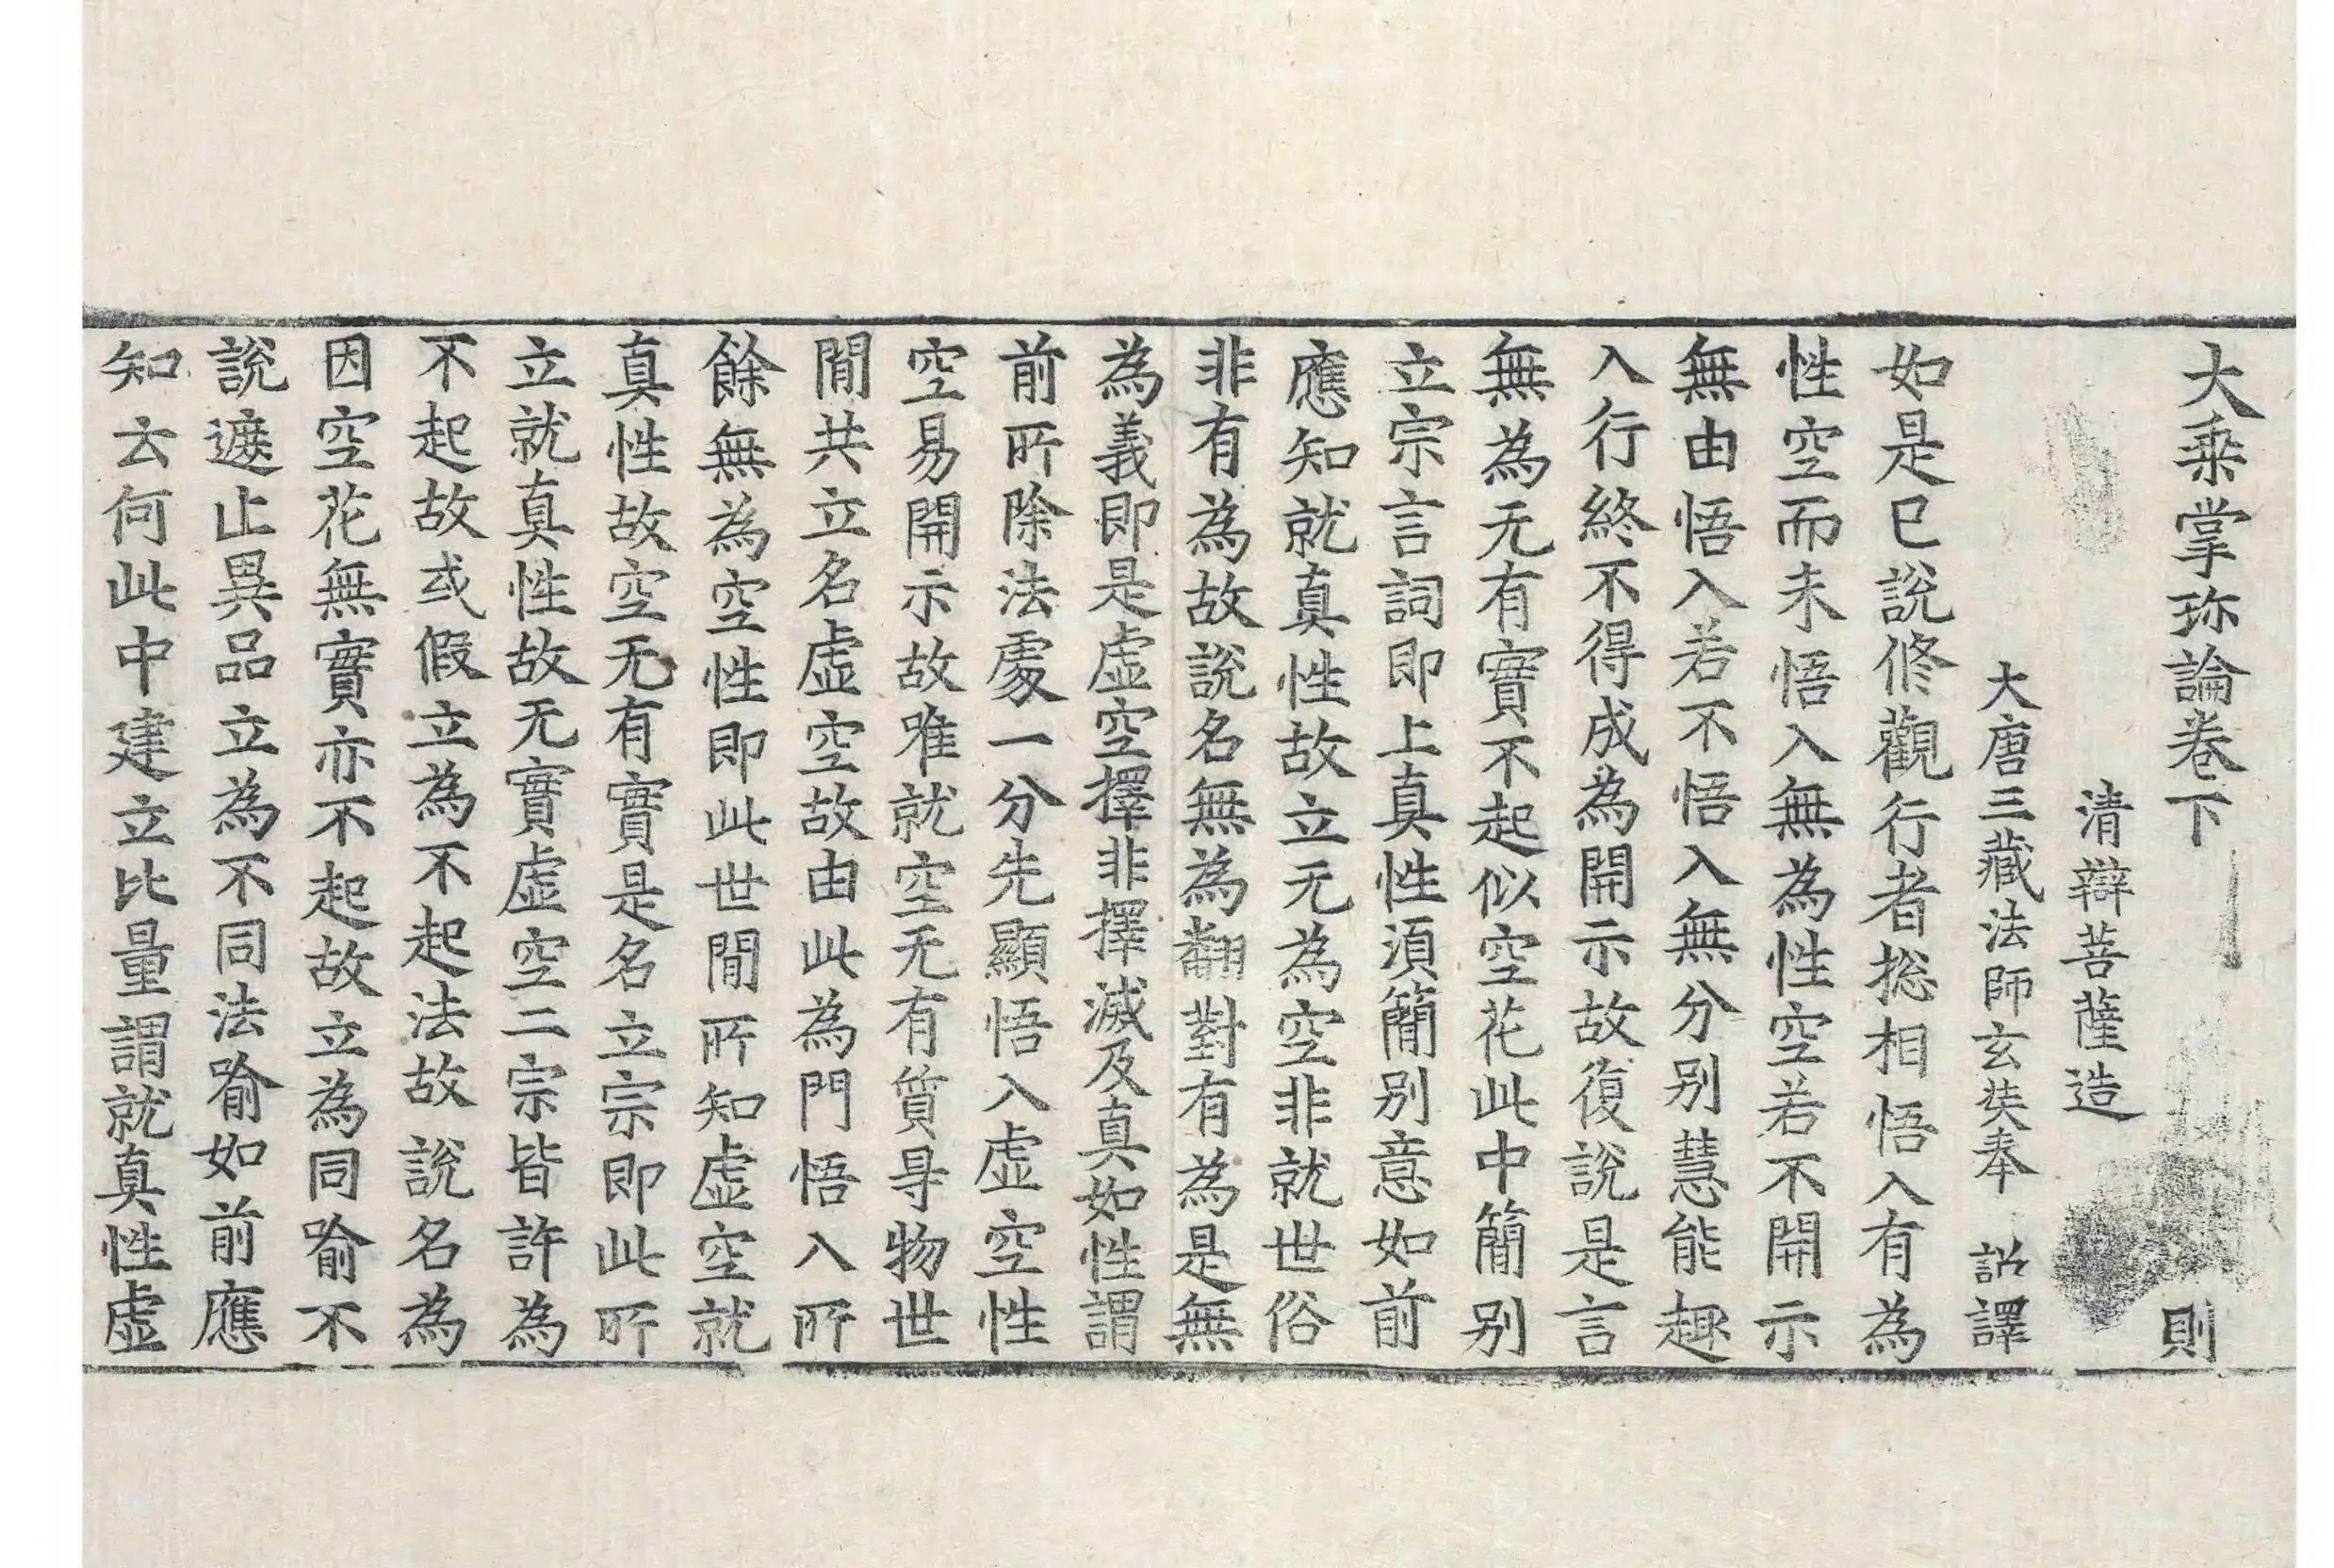 大乗掌珎論卷下 則
清辯菩薩造
大唐三藏法師玄奘奉 詔譯
如是已說修觀行者揔相悟入有為
性空而未悟入無為性空若不開示
無由悟入若不悟入無分別慧能趣
入行終不得成為開示故復說是言
無為无有實不起似空花此中簡別
立宗言詞即上真性須簡別意如前
應知就真性故立无為空非就世俗
非有為故說名無為翻對有為是無
為義即是虛空擇非擇滅及真如性謂
前所除法處一分先顯悟入虛空性
空易開示故唯就空无有質㝵物世
間共立名虛空故由此為門悟入所
餘無為空性即此世間所知虛空就
真性故空无有實是名立宗即此所
立就真性故无實虛空二宗皆許為
不起故或假立為不起法故說名為
因空花無實亦不起故立為同喻不
說遮止異品立為不同法喻如前應
知云何此中建立比量謂就真性虛